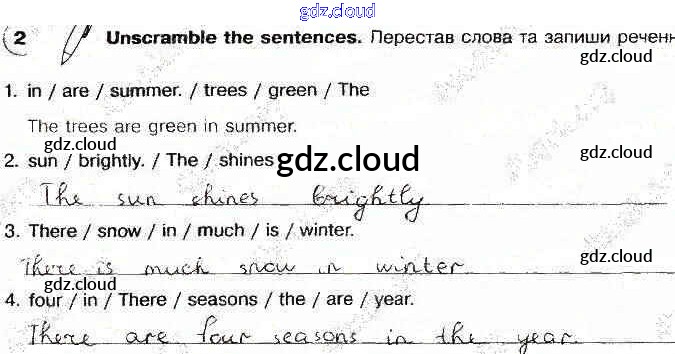 gdz.cloud
2 Unscramble the sentences. Перестав слова та запиши реченн
gdz.cloud
1. in / are / summer. / trees / green / The
gdz.cloud
The trees are green in summer.
2. sun / brightly. / The / shines gdz.cloud gdz.cloud
The sun shines brightly
3. There / snow / in / much / is / winter.
gdz.cloud
There is much snow in winter
gdz.cloud
4. four / in / There / seasons / the / are / year.
gdz.cloud
There are four seasons in the year.
gdz.cloud